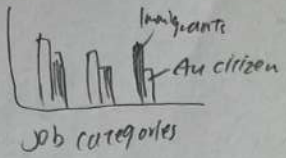 Immigrants
Au citizen
Job categories